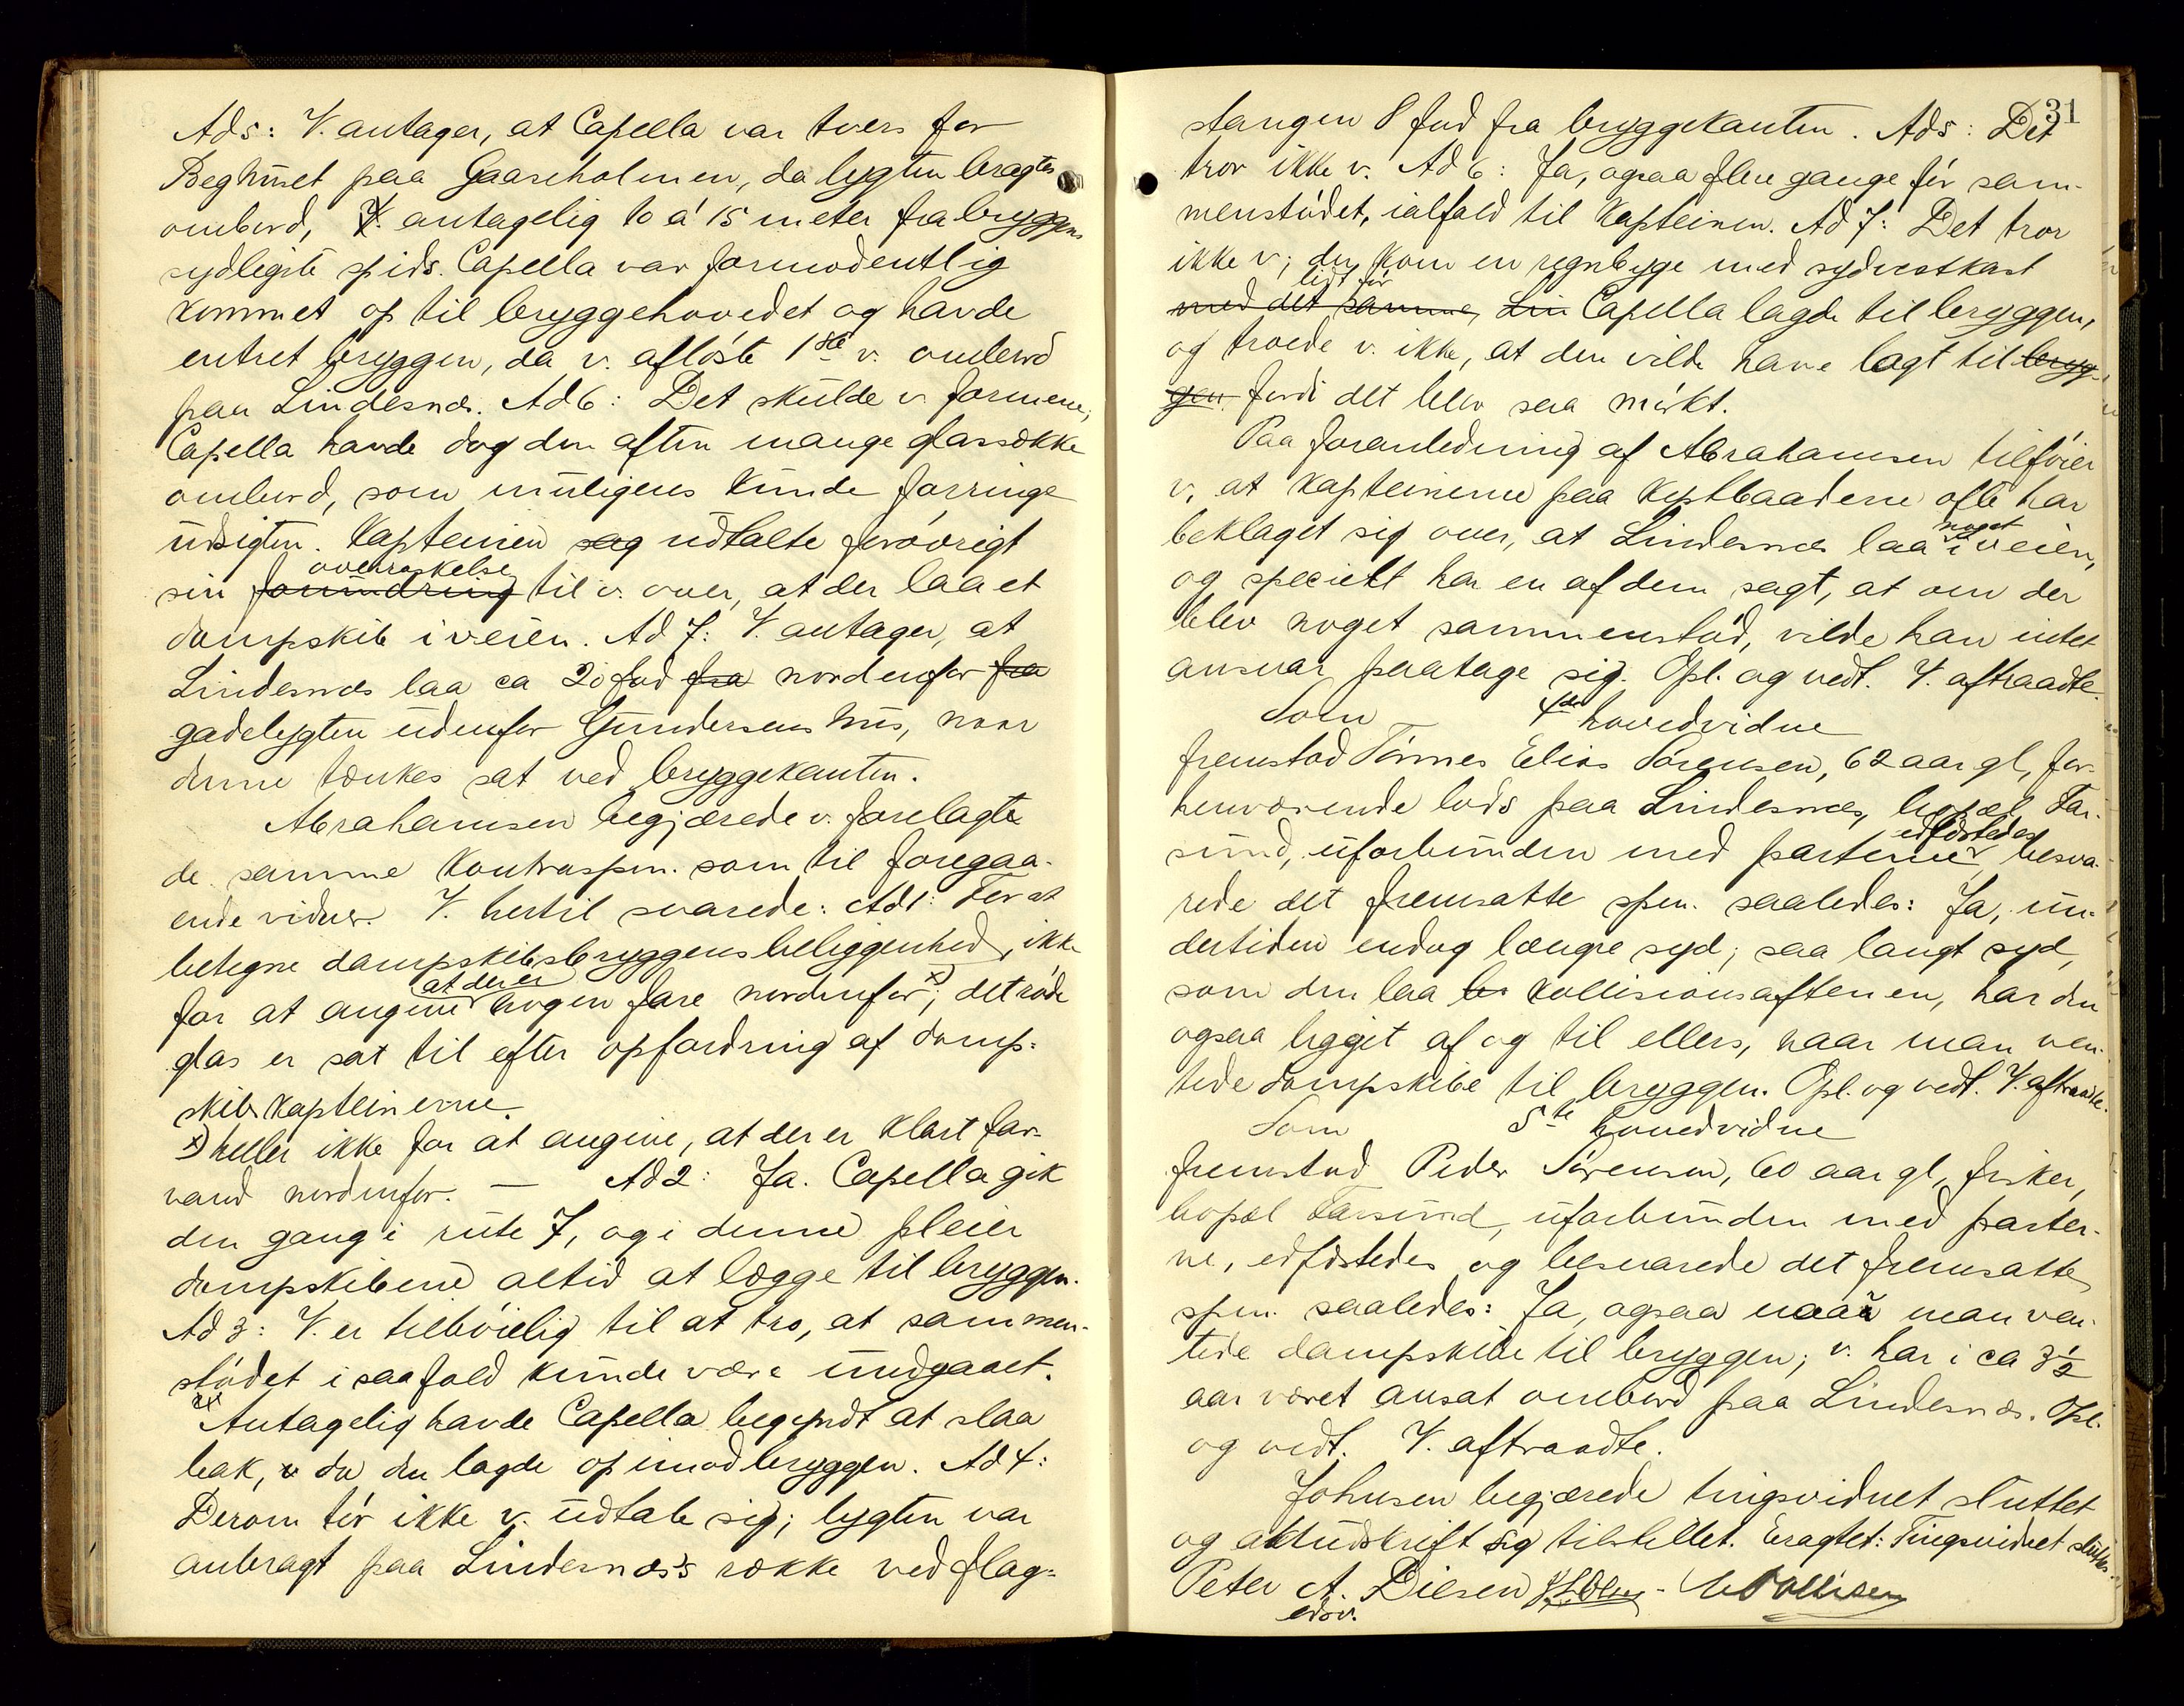 Ad 5: V. antager, at Capella var tvers for
Beghuset paa Gaaseholmen, da lygten bragtes
ombord, V. antagelig 10 á 15 meter fra bryggens
sydligste spids. Capella var formodentlig
kommet op til bryggehovedet og havde
entret bryggen, da v. afløste 1ste v. ombord
paa Lindesnæs. Ad 6: Det skulde v. formene;
Capella havde dog den aften mange glassække
ombord, som muligens kunde forringe
udsigten. Kapteinen sag udtalte forøvrigt
overraskelse
sin forundring til v. over, at der laa et
dampskib i veien. Ad 7: V. antager, at
Lindesnæs laa ca 20 fod fra nordenfor fra
gadelygten udenfor Gundersens hus, naar
denne tænkes sat ved bryggekanten.
Abrahamsen begjærede v. forelagte
de samme kontraspm. som til foregaa-
ende vidner. V. hertil svarede: Ad 1: For at
betegne dampskibsbryggens beliggenhed, ikke
at der er
for at angive nogen fare nordenfor x); det røde
glas er sat til efter opfordring af damp-
skibskapteinerne.
x) heller ikke for at angive, at der er klart far-
vand nordenfor. — Ad 2: Ja. Capella gik
den gang i rute 7, og i denne pleier
dampskibene altid at lægge til bryggen.
Ad 3: V. er tilbøielig til at tro, at sammen-
stødet i saafald kunde være undgaaet.
Antagelig havde Capella begyndt at slaa
bak, v da den lagde op imod bryggen. Ad 4:
Derom tør ikke v. udtale sig; lygten var
anbragt paa Lindesnæs's række ved flag-
31
stangen 8 fod fra bryggekanten. Ad 5: Det
tror ikke v. Ad 6: Ja, ogsaa flere gange før sam-
menstødet, ialfald til kapteinen. Ad 7: Det tror
ikke v; der kom en regnbyge med sydvestkast
lidt før
med det samme, Lin Capella lagde til bryggen,
og troede v. ikke, at den vilde have lagt til bryg-
gen fordi det blev saa mørkt.
Paa foranledning af Abrahamsen tilføier
v, at kapteinerne paa kystbaadene ofte har
noget
beklaget sig over, at Lindesnæs laa i veien,
og specielt har en af dem sagt, at om der
blev noget sammenstød, vilde han intet
ansvar paatage sig. Opl. og vedt. V. aftraadte.
Som 4de hovedvidne
fremstod Tønnes Elias Sørensen, 62 aar gl, for-
henværende lods paa Lindesnæs, bopæl Far-
edfæstedes
sund, uforbunden med parterne, besva-
rede det fremsatte spm. saaledes: Ja, un-
dertiden endog længre syd; saa langt syd,
som den laa be kollisionsaftenen, har den
ogsaa ligget af og til ellers, naar man ven-
tede dampskibe til bryggen. Opl. og vedt. V. aftraadte.
Som 5te hovedvidne
fremstod Peder Sørensen, 60 aar gl, fisker,
bopæl Farsund, uforbunden med parter-
ne, edfæstedes og besvarede det fremsatte
spm. saaledes: Ja, ogsaa naar man ven-
tede dampskibe til bryggen; v. har i ca 3½
aar været ansat ombord paa Lindesnæs. Opl.
og vedt. V. aftraadte.
Johnsen begjærede tingsvidnet sluttet
og aktudskrift sig tilstillet. Eragtet: Tingsvidnet sluttes.
Peter A. Diesen
edsv.